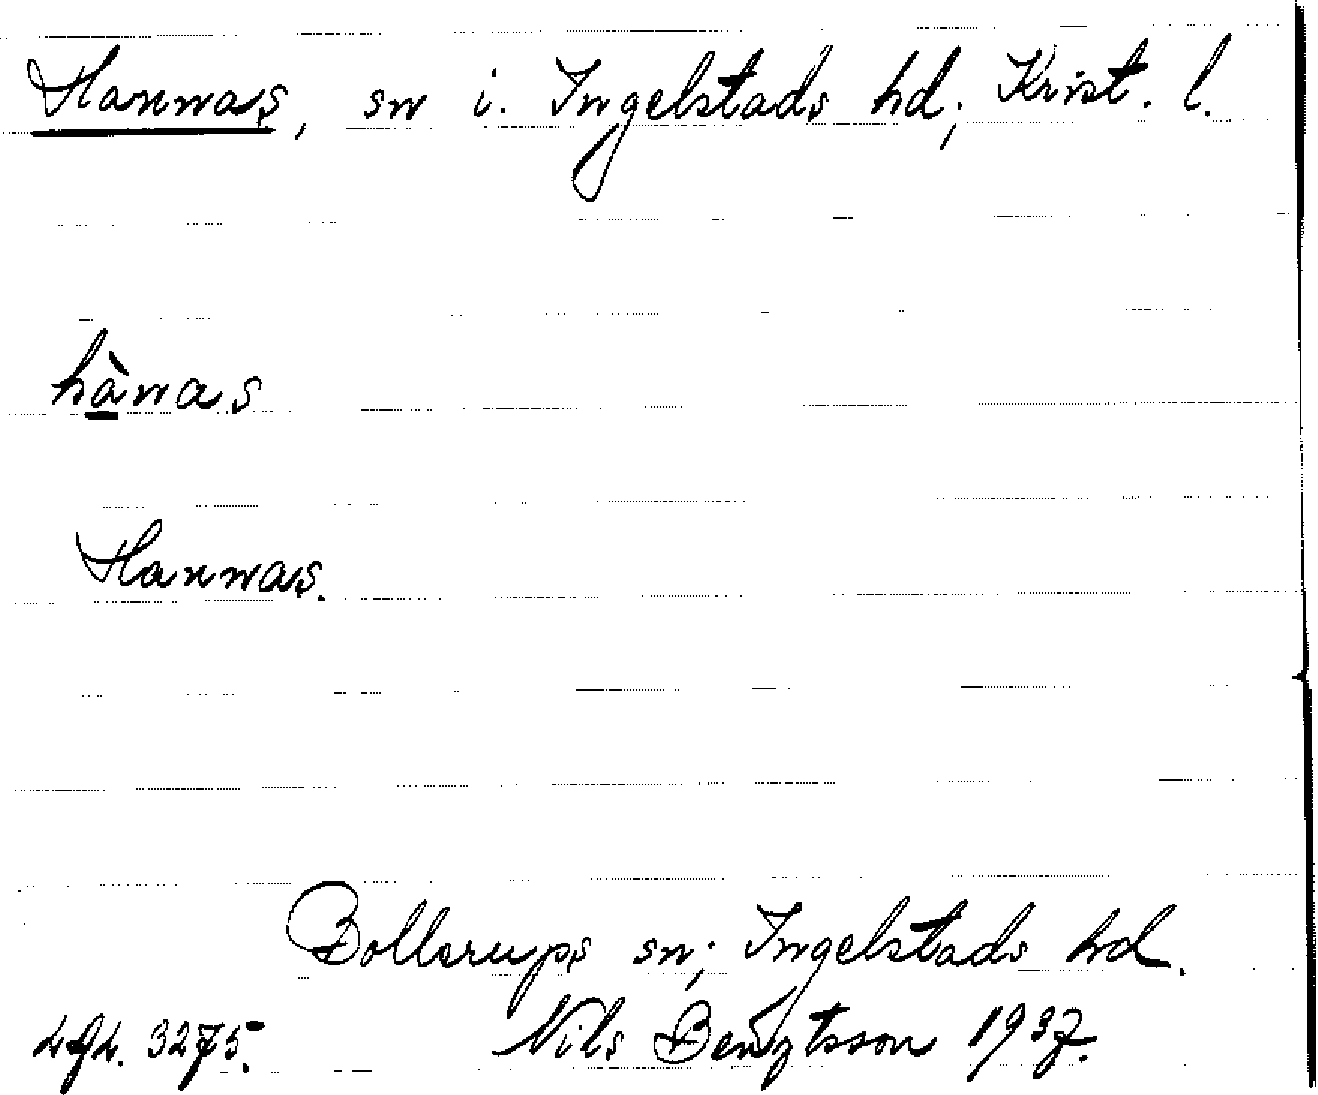 Hannas, sn i. Ingelstads hd; Krist. l.
hànas
Hannas.
Bollerups sn; Ingelstads hd.
Nils Bengtsson 1937.
3275.